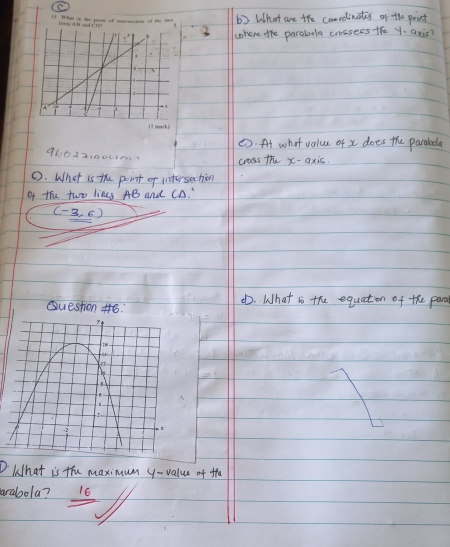 c
c) What is the point of intersection of the two
lines AB and CD?
[1 mark]
c). What is the point of intersection
of the two lines AB and CD.
(-3, 6)
Question #6:
What is the maximum y-value of the
arabola? 16
b) What are the coordinates of the point
where the parabola crossess the y-axis?
c). At what value of x does the parabola
cross the x-axis.
d). What is the equation of the para